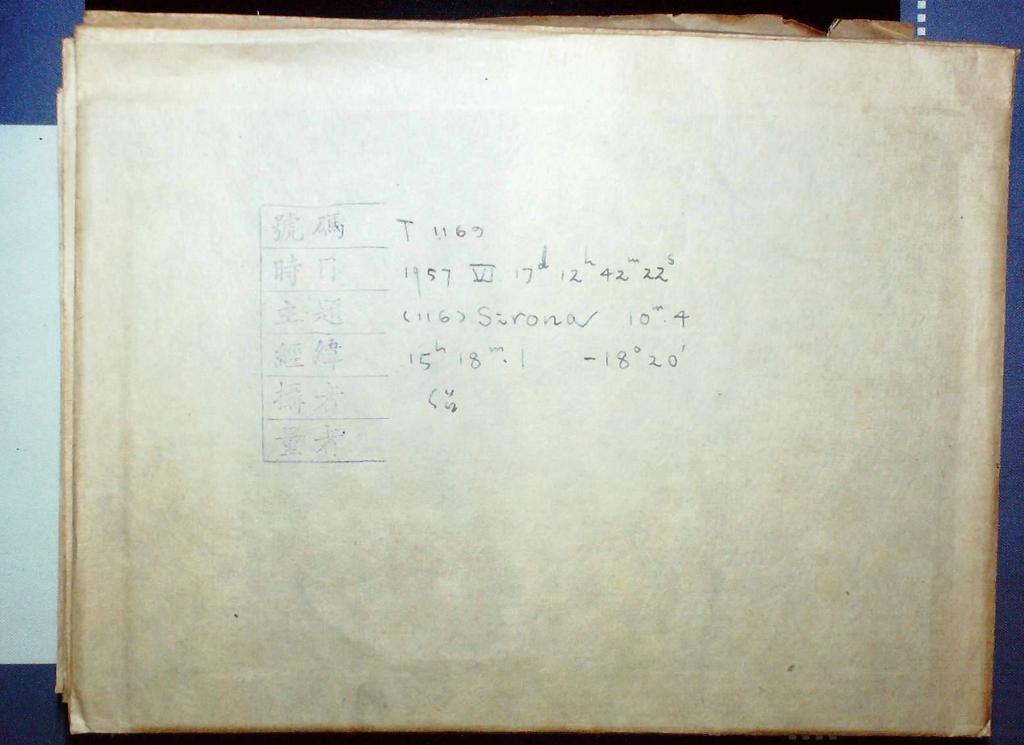 號碼 T 1169
時日 1957 VI 17ᵈ 12ʰ 42ᵐ 22ˢ
主題 (116) Sirona 10ᵐ.4
經緯 15ʰ 18ᵐ.1 -18°20'
攝者
量者